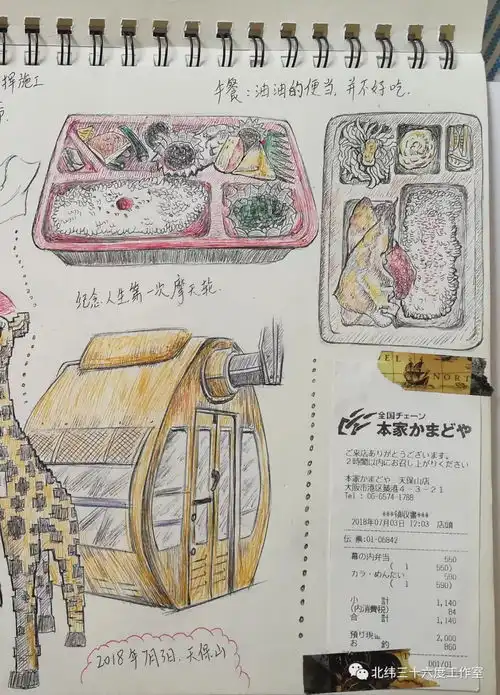 挥施工
午餐：油油的便当,并不好吃.
纪念人生第一次摩天轮
EL
NORT
全国チェーン
本家かまどや
ご来店ありがとうございます。
2時間以内にお召し上がりください
本家かまどや 天保山店
大阪市港区築港4-3-21
Tel : 06-6574-1788
***領収書***
2018年07月03日 12:03 店頭
伝 票:01-06842
幕の内弁当 550
( 1 550)
カラ・めんたい 590
( 1 590)
小 計 1,140
(内消費税) 84
合 計 1,140
預り現金 2,000
お 釣 860
001/01
2018年7月3日.天保山
北纬三十六度工作室